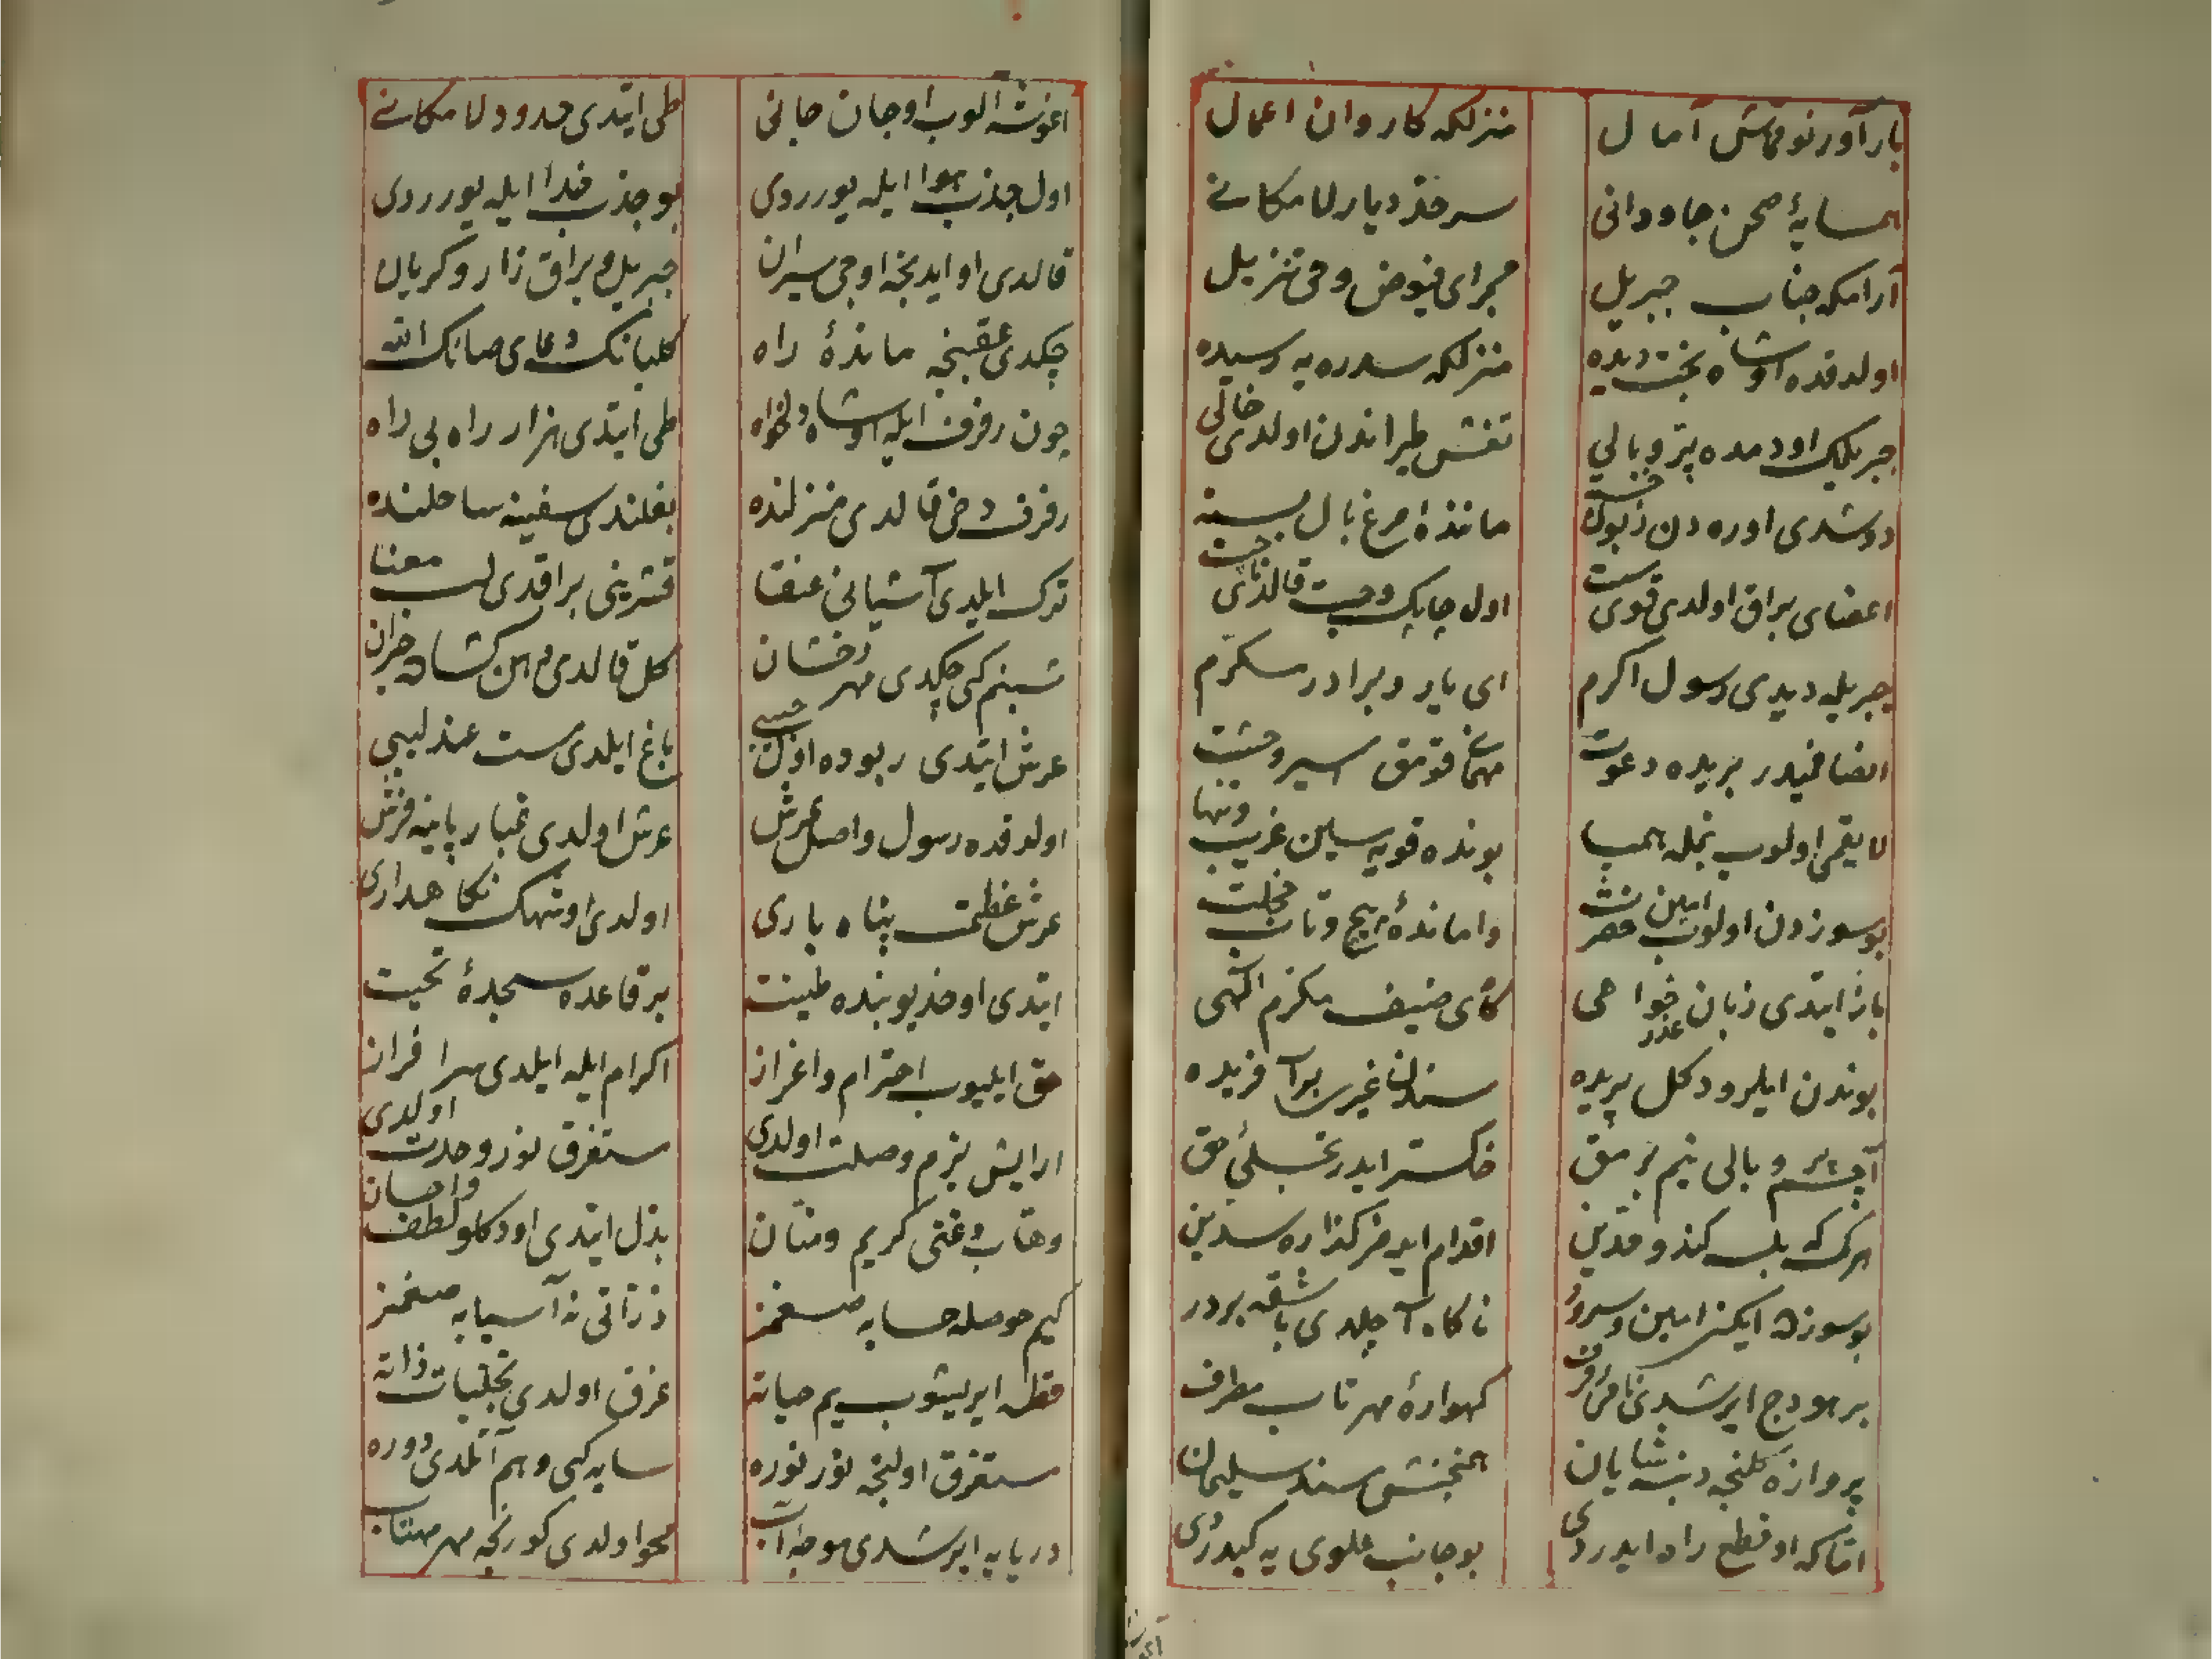 بارآور نوقماش آمال
منزلکه کاروان اعمال
همسایهٔ صحن جاودانی
سرحد دیار لامکانی
آرامکه جناب جبریل
مجرای فیوض وحی تنزیل
اولدقده اوشاه بخت دیده
منزلکه سدره یه رسیده
جبریلک اودمده پر و بالی
نقش طیراندن اولدی خالی
دوشدی اوره دن زبون خسته
مانندهٔ مرغ بال بسته
اعضای براق اولدی قوی سست
اول چابک و چست قالدی
جبریله دیدی رسول اکرم
ای یار و برادر مکرم
انصافمیدر بریده دعوت
مهمانی قومق اسیر وحشت
لایقمی اولوب بکله همپا
بونده قویه سین غریب و تنها
بوسوزدن اولوب امین حضرت
واماندهٔ پیچ و تاب خجلت
باز ایتدی زبان عذر خواهی
کای ضیف مکرم الهی
بوندن ایلرو دکل پریده
سندن غیری برآفریده
آچسم پر و بالی نیم بر مق
خاکستر ایدر تجلئ حق
هرکس که بلسه کندو حدین
اقدام ایدمز کذاره سدین
بوسوزده ایکن امین و سرور
ناکاه آچلدی باشقه بر در
بر هودج ایرشدی نامی رفرف
کهوارهٔ مهرتاب مطرف
پروازه کلنجه دنسه شایان
همجنبش مسند سلیمان
اماکه او قطع راه ایدردی
بوجانب علوی یه کیدردی
اغوشه الوب اوجان جانی
طی ایتدی حدود لامکانی
اول جذب هوا ایله یوردی
بوجذب خدا ایله یوردی
قالدی او ایدنجه اوجی سیران
جبریل و براق زار و کریان
چکدی عقبنجه ماندهٔ راه
کلبانک دعای صانک الله
چون رفرف ایله اوشاه دلخواه
طی ایتدی هزار راه بی راه
رفرف دخی قالدی منزلنده
بغلندی سفینه ساحلنده
ترک ایلدی آشیانی عنقا
قشرینی براقدی لب معنا
شبنم کبی چکدی مهر رخشان
کل قالدی دهن کشاده حیران
عرش ایتدی ربوده اول حبیبی
باغ ایلدی مست عندلیبی
اولدقده رسول واصل عرش
عرش اولدی غبار پاینه فرش
عرش عظمت پناه باری
اولدی اوشهک نکاهداری
ایتدی اوخدیو بنده طینت
برقاعده سجدهٔ تحیت
حق ایلیوب احترام و اعزاز
اکرام ایله ایلدی سرافراز
ارایش بزم وصلت اولدی
مستغرق نور وحدت اولدی
وهاب و غنی کریم و منان
بذل ایتدی اودکلو لطف و احسان
کیم حوصله حسابه صغمز
ذراتی نه آسیابه صغمز
قطره ایریشوب یم حیاته
غرق اولدی تجلیات ذاته
مستغرق اولنجه نور نوره
سایه کبی وهم آتلدی دوره
دریایه ایرشدی موجهٔ آب
محو اولدی کورنجه مهر مهتاب